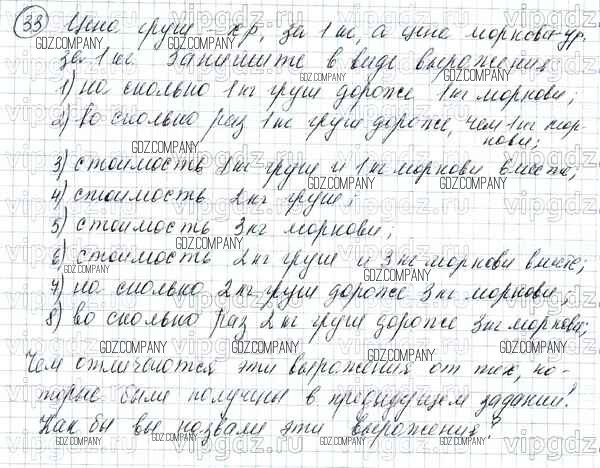 33) Цена груш х р. за 1 кг, а цена моркови - у р.
за 1 кг. Запишите в виде выражения
1) на сколько 1 кг груш дороже 1 кг моркови;
2) во сколько раз 1 кг груш дороже, чем 1 кг мор-
кови;
3) стоимость 1 кг груш и 1 кг моркови вместе;
4) стоимость 2 кг груш;
5) стоимость 3 кг моркови;
6) стоимость 2 кг груш и 3 кг моркови вместе;
7) на сколько 2 кг груш дороже 3 кг моркови;
8) во сколько раз 2 кг груш дороже 3 кг моркови;
Чем отличаются эти выражения от тех, ко-
торые были получены в предыдущем задании?
Как бы вы назвали эти выражения?
GDZ.COMPANY
vipgdz.ru